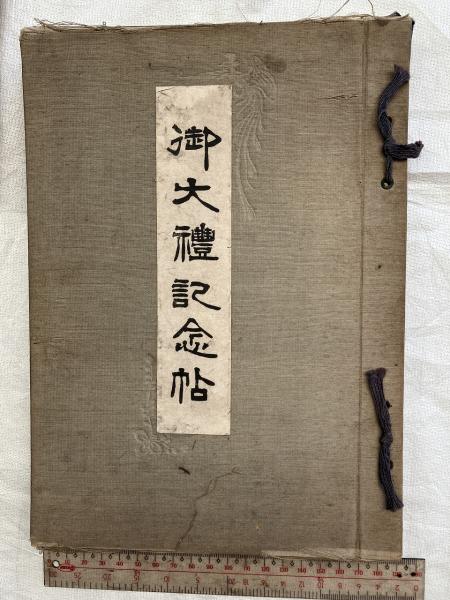 御大禮記念帖